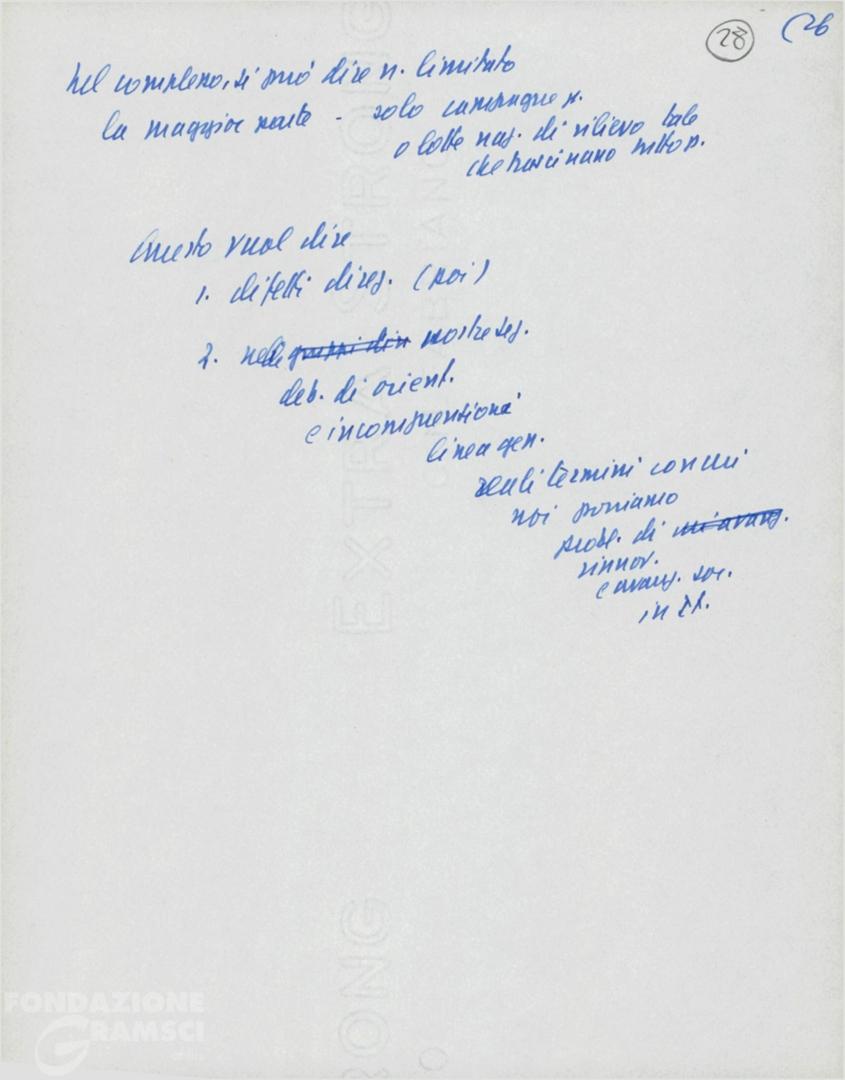 28
(26
Nel complesso, si può dire n. limitato
la maggior parte - solo campagne p.
o lotte naz. di rilievo tale
che trascinano tutto p.
Questo vuol dire
1. difetti direz. (noi)
2. nelle gruppi dir nostre sez.
deb. di orient.
e incomprensioni
linea gen.
reali termini con cui
noi poniamo
probl. di
rinnov.
e avanz. soc.
in It.
EXTRA STRONG
FONDAZIONE
GRAMSCI